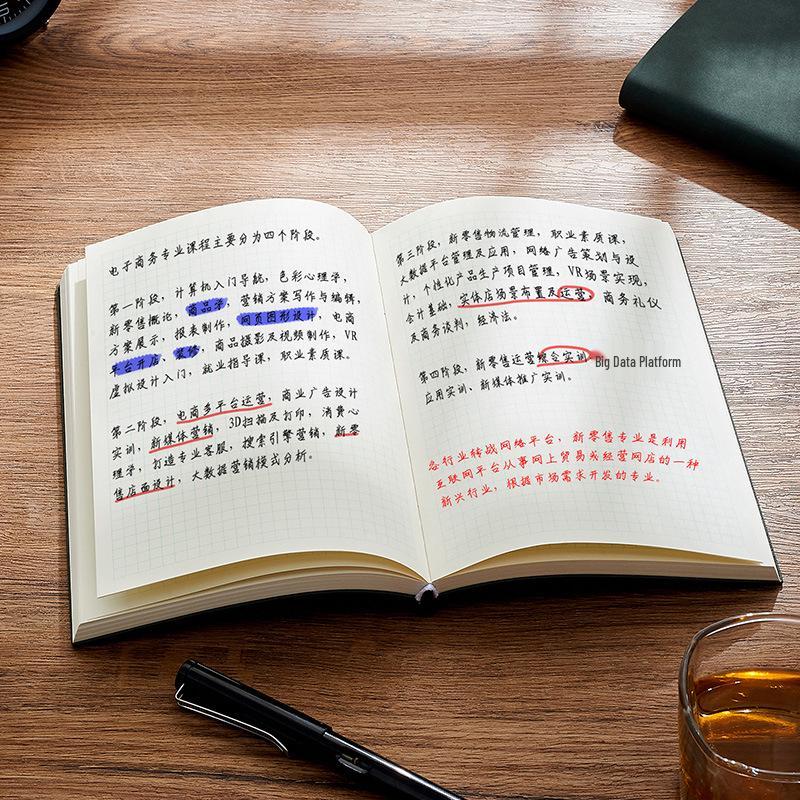 电子商务专业课程主要分为四个阶段。
第一阶段，计算机入门导航，色彩心理学，
新零售概论，商品学，营销方案写作与编辑，
方案展示，报表制作，网页图形设计，电商
平台开店，装修，商品摄影及视频制作，VR
虚拟设计入门，就业指导课，职业素质课。
第二阶段，电商多平台运营，商业广告设计
实训，新媒体营销，3D扫描及打印，消费心
理学，打造专业客服，搜索引擎营销，新零
售店面设计，大数据营销模式分析。
第三阶段，新零售物流管理，职业素质课，
大数据平台管理及应用，网络广告策划与设
计，个性化产品生产项目管理，VR场景实现，
会计基础，实体店场景布置及运营，商务礼仪
及商务谈判，经济法。
第四阶段，新零售运营综合实训 Big Data Platform
应用实训、新媒体推广实训。
各行业转战网络平台，新零售专业是利用
互联网平台从事网上贸易或经营网店的一种
新兴行业，根据市场需求开发的专业。